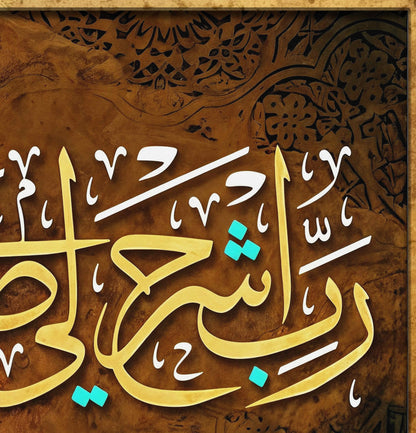 رَبِّ اشْرَحْ لِي